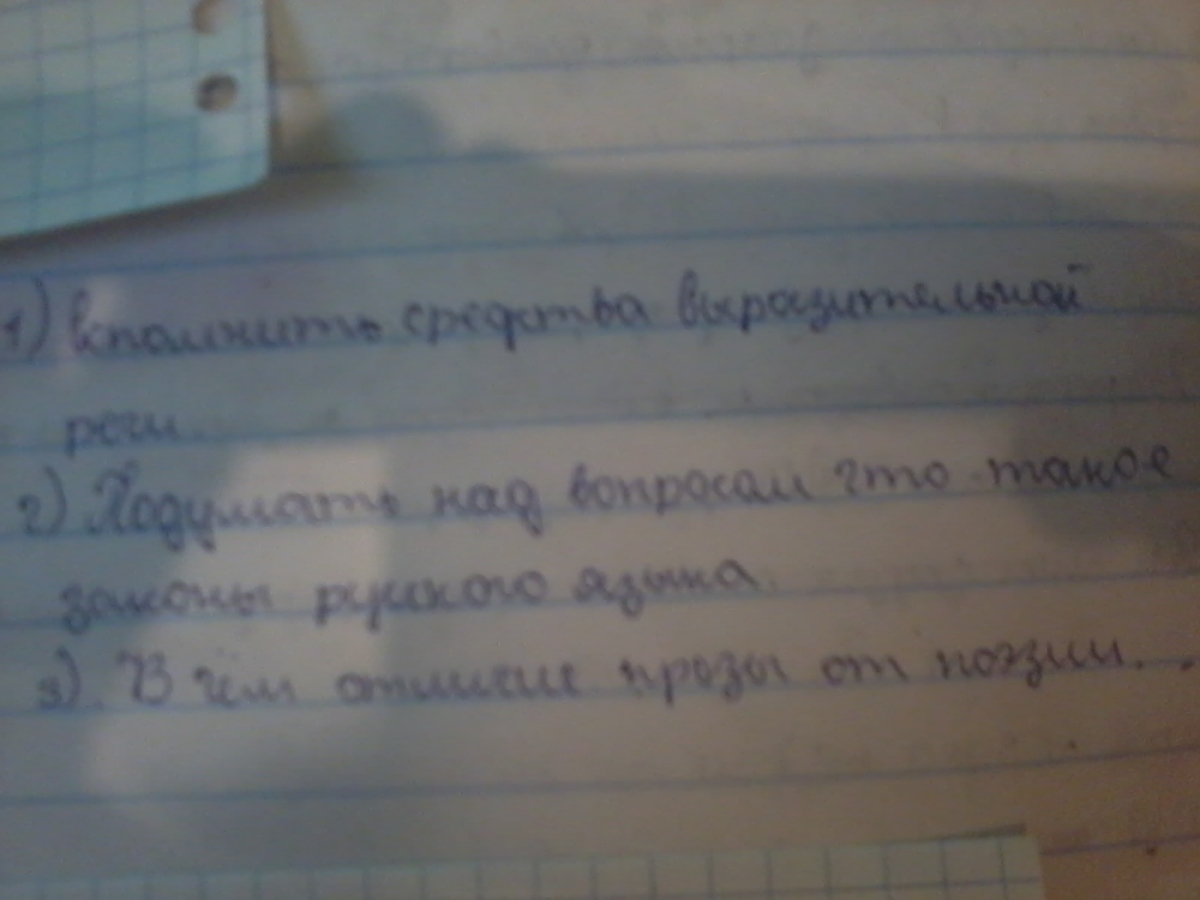 1) вспомнить средства выразительной
речи.
2) Подумать над вопросом что такое
законы русского языка.
3). В чём отличие прозы от поэзии.